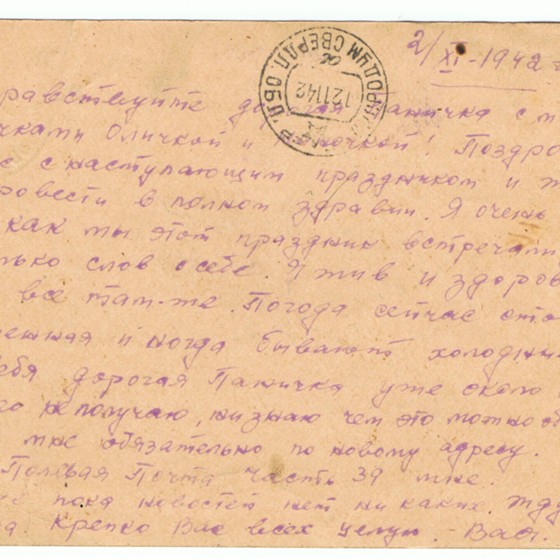 2/XI-1942
равствуйте дорогая Паничка с м
чками Оличкой и ночкой! Поздро
с с наступающим праздником и ж
ровести в полном здравии. Я очень
как мы этот праздник встречали
лько слов о себе. Я жив и здоров
все там-же. Погода сейчас сто
менная иногда бывают холодны
ебя дорогая Паничка уже около
го не получаю, ни знаю чем это можно об
мне обязательно по новому адресу.
Полевая Почта часть 39 мне.
пока новостей нет ни каких. Жду
Крепко Вас всех целую. - Ваш.
ГОРОДУМ СВЕРДЛ. ОБЛ.
121142